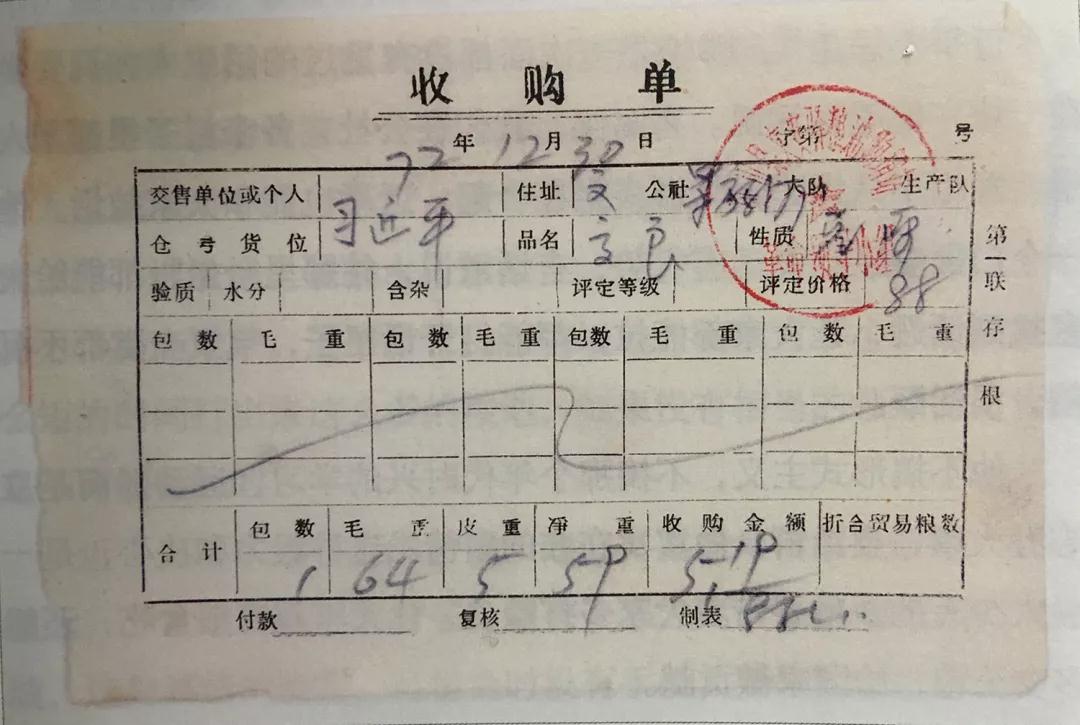 收购单
72年12月30日 字第 号
交售单位或个人 习近平 住址 文 公社 大队 生产队
仓号货位 品名 性质
验质 水分 含杂 评定等级 评定价格 88
包数 毛重 包数 毛重 包数 毛重 包数 毛重
合计 包数 毛重 皮重 净重 收购金额 折合贸易粮数
1 64 5 59 5.19
付款 复核 制表
第一联存根